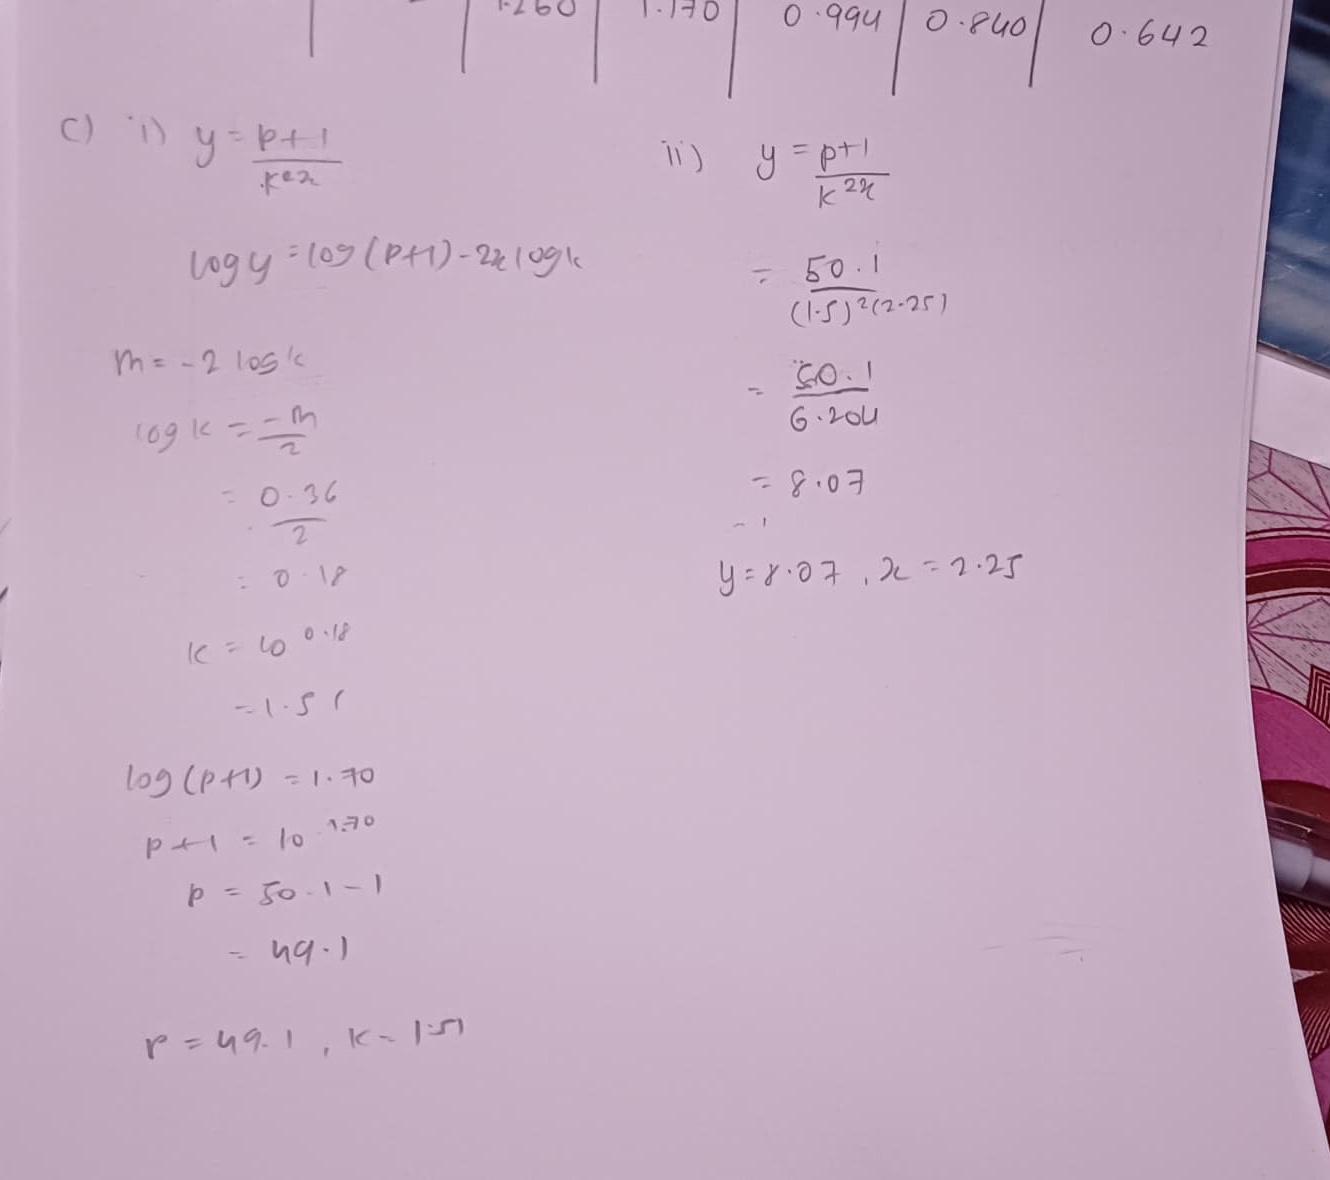 1.260 1.170 0.994 0.840 0.642
c) i) y = p+1
k2x
log y = log (p+1) - 2x log k
m = -2 log k
log k = -m
2
= 0.36
2
= 0.18
k = 10 0.18
= 1.51
log (p+1) = 1.70
p+1 = 10 1.70
p = 50.1-1
= 49.1
p = 49.1 , k = 1.51
ii) y = p+1
k 2x
= 50.1
(1.5)2(2.25)
= 50.1
6.204
= 8.07
y = 8.07 , x = 2.25